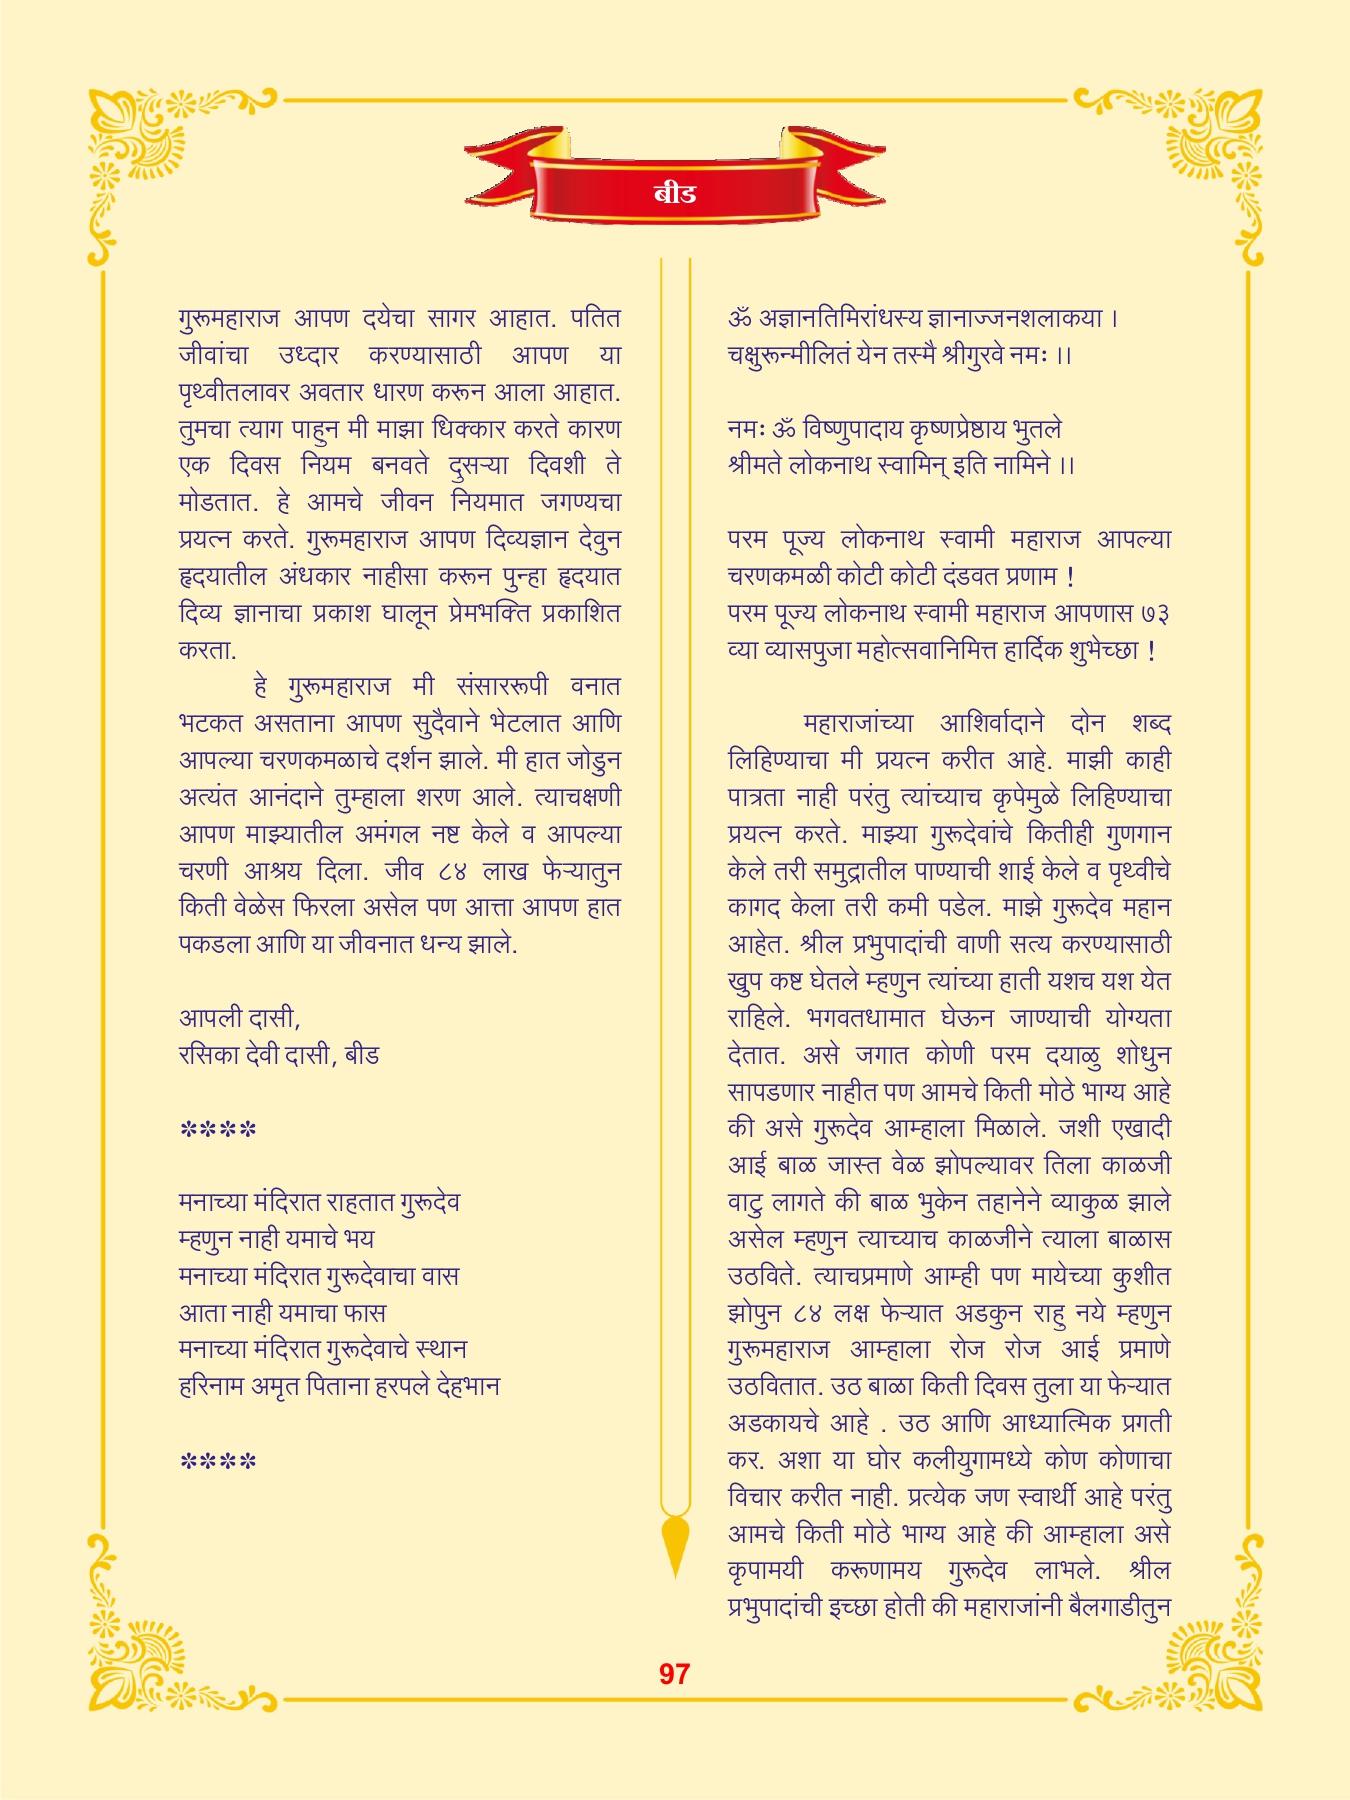 बीड
गुरूमहाराज आपण दयेचा सागर आहात. पतित
जीवांचा उध्दार करण्यासाठी आपण या
पृथ्वीतलावर अवतार धारण करून आला आहात.
तुमचा त्याग पाहुन मी माझा धिक्कार करते कारण
एक दिवस नियम बनवते दुसऱ्या दिवशी ते
मोडतात. हे आमचे जीवन नियमात जगण्यचा
प्रयत्न करते. गुरूमहाराज आपण दिव्यज्ञान देवुन
हृदयातील अंधकार नाहीसा करून पुन्हा हृदयात
दिव्य ज्ञानाचा प्रकाश घालून प्रेमभक्ति प्रकाशित
करता.
हे गुरूमहाराज मी संसाररूपी वनात
भटकत असताना आपण सुदैवाने भेटलात आणि
आपल्या चरणकमळाचे दर्शन झाले. मी हात जोडुन
अत्यंत आनंदाने तुम्हाला शरण आले. त्याचक्षणी
आपण माझ्यातील अमंगल नष्ट केले व आपल्या
चरणी आश्रय दिला. जीव ८४ लाख फेऱ्यातुन
किती वेळेस फिरला असेल पण आत्ता आपण हात
पकडला आणि या जीवनात धन्य झाले.
आपली दासी,
रसिका देवी दासी, बीड
****
मनाच्या मंदिरात राहतात गुरूदेव
म्हणुन नाही यमाचे भय
मनाच्या मंदिरात गुरूदेवाचा वास
आता नाही यमाचा फास
मनाच्या मंदिरात गुरूदेवाचे स्थान
हरिनाम अमृत पिताना हरपले देहभान
****
ॐ अज्ञानतिमिरांधस्य ज्ञानाज्जनशलाकया ।
चक्षुरून्मीलितं येन तस्मै श्रीगुरवे नमः ।।
नमः ॐ विष्णुपादाय कृष्णप्रेष्ठाय भुतले
श्रीमते लोकनाथ स्वामिन् इति नामिने ।।
परम पूज्य लोकनाथ स्वामी महाराज आपल्या
चरणकमळी कोटी कोटी दंडवत प्रणाम !
परम पूज्य लोकनाथ स्वामी महाराज आपणास ७३
व्या व्यासपुजा महोत्सवानिमित्त हार्दिक शुभेच्छा !
महाराजांच्या आशिर्वादाने दोन शब्द
लिहिण्याचा मी प्रयत्न करीत आहे. माझी काही
पात्रता नाही परंतु त्यांच्याच कृपेमुळे लिहिण्याचा
प्रयत्न करते. माझ्या गुरूदेवांचे कितीही गुणगान
केले तरी समुद्रातील पाण्याची शाई केले व पृथ्वीचे
कागद केला तरी कमी पडेल. माझे गुरूदेव महान
आहेत. श्रील प्रभुपादांची वाणी सत्य करण्यासाठी
खुप कष्ट घेतले म्हणुन त्यांच्या हाती यशच यश येत
राहिले. भगवतधामात घेऊन जाण्याची योग्यता
देतात. असे जगात कोणी परम दयाळु शोधुन
सापडणार नाहीत पण आमचे किती मोठे भाग्य आहे
की असे गुरूदेव आम्हाला मिळाले. जशी एखादी
आई बाळ जास्त वेळ झोपल्यावर तिला काळजी
वाटु लागते की बाळ भुकेन तहानेने व्याकुळ झाले
असेल म्हणुन त्याच्याच काळजीने त्याला बाळास
उठविते. त्याचप्रमाणे आम्ही पण मायेच्या कुशीत
झोपुन ८४ लक्ष फेऱ्यात अडकुन राहु नये म्हणुन
गुरूमहाराज आम्हाला रोज रोज आई प्रमाणे
उठवितात. उठ बाळा किती दिवस तुला या फेऱ्यात
अडकायचे आहे . उठ आणि आध्यात्मिक प्रगती
कर. अशा या घोर कलीयुगामध्ये कोण कोणाचा
विचार करीत नाही. प्रत्येक जण स्वार्थी आहे परंतु
आमचे किती मोठे भाग्य आहे की आम्हाला असे
कृपामयी करूणामय गुरूदेव लाभले. श्रील
प्रभुपादांची इच्छा होती की महाराजांनी बैलगाडीतुन
97